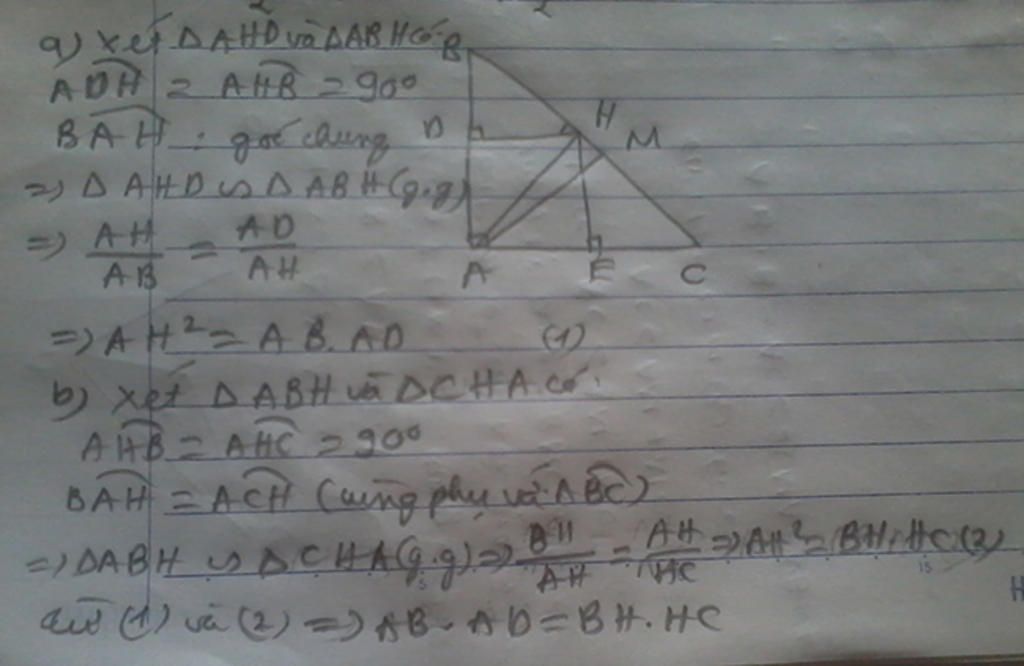 a) Xét ΔAHD và ΔABH có:
ADH = AHB = 90°
BAH : góc chung
=> ΔAHD ∽ ΔABH (g.g)
=> AH/AB = AD/AH
=> AH² = AB.AD (1)
B
D
H
M
A
E
C
b) Xét ΔABH và ΔCHA có:
AHB = AHC = 90°
BAH = ACH (cùng phụ với ABC)
=> ΔABH ∽ ΔCHA (g.g) => BH/AH = AH/HC => AH² = BH.HC (2)
15
H
Từ (1) và (2) => AB.AD = BH.HC